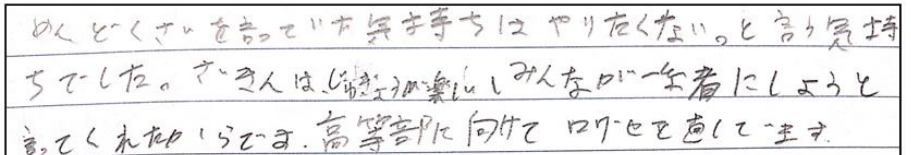 めんどくさいを言っていた気持ちは やりたくない。と言う気持
ちでした。さいきんは、じゅぎょうが楽しいしみんなが一緒にしようと
言ってくれたからです。高等部に向けて口グセを直しています。